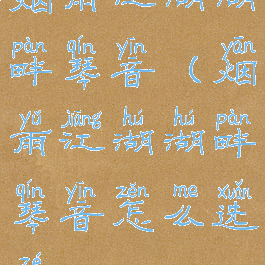 烟雨江湖湖
pàn qín yīn yān
畔琴音(烟
yǔ jiāng hú hú pàn
雨江湖湖畔
qín yīn zěn me xuǎn
琴音怎么选
zé